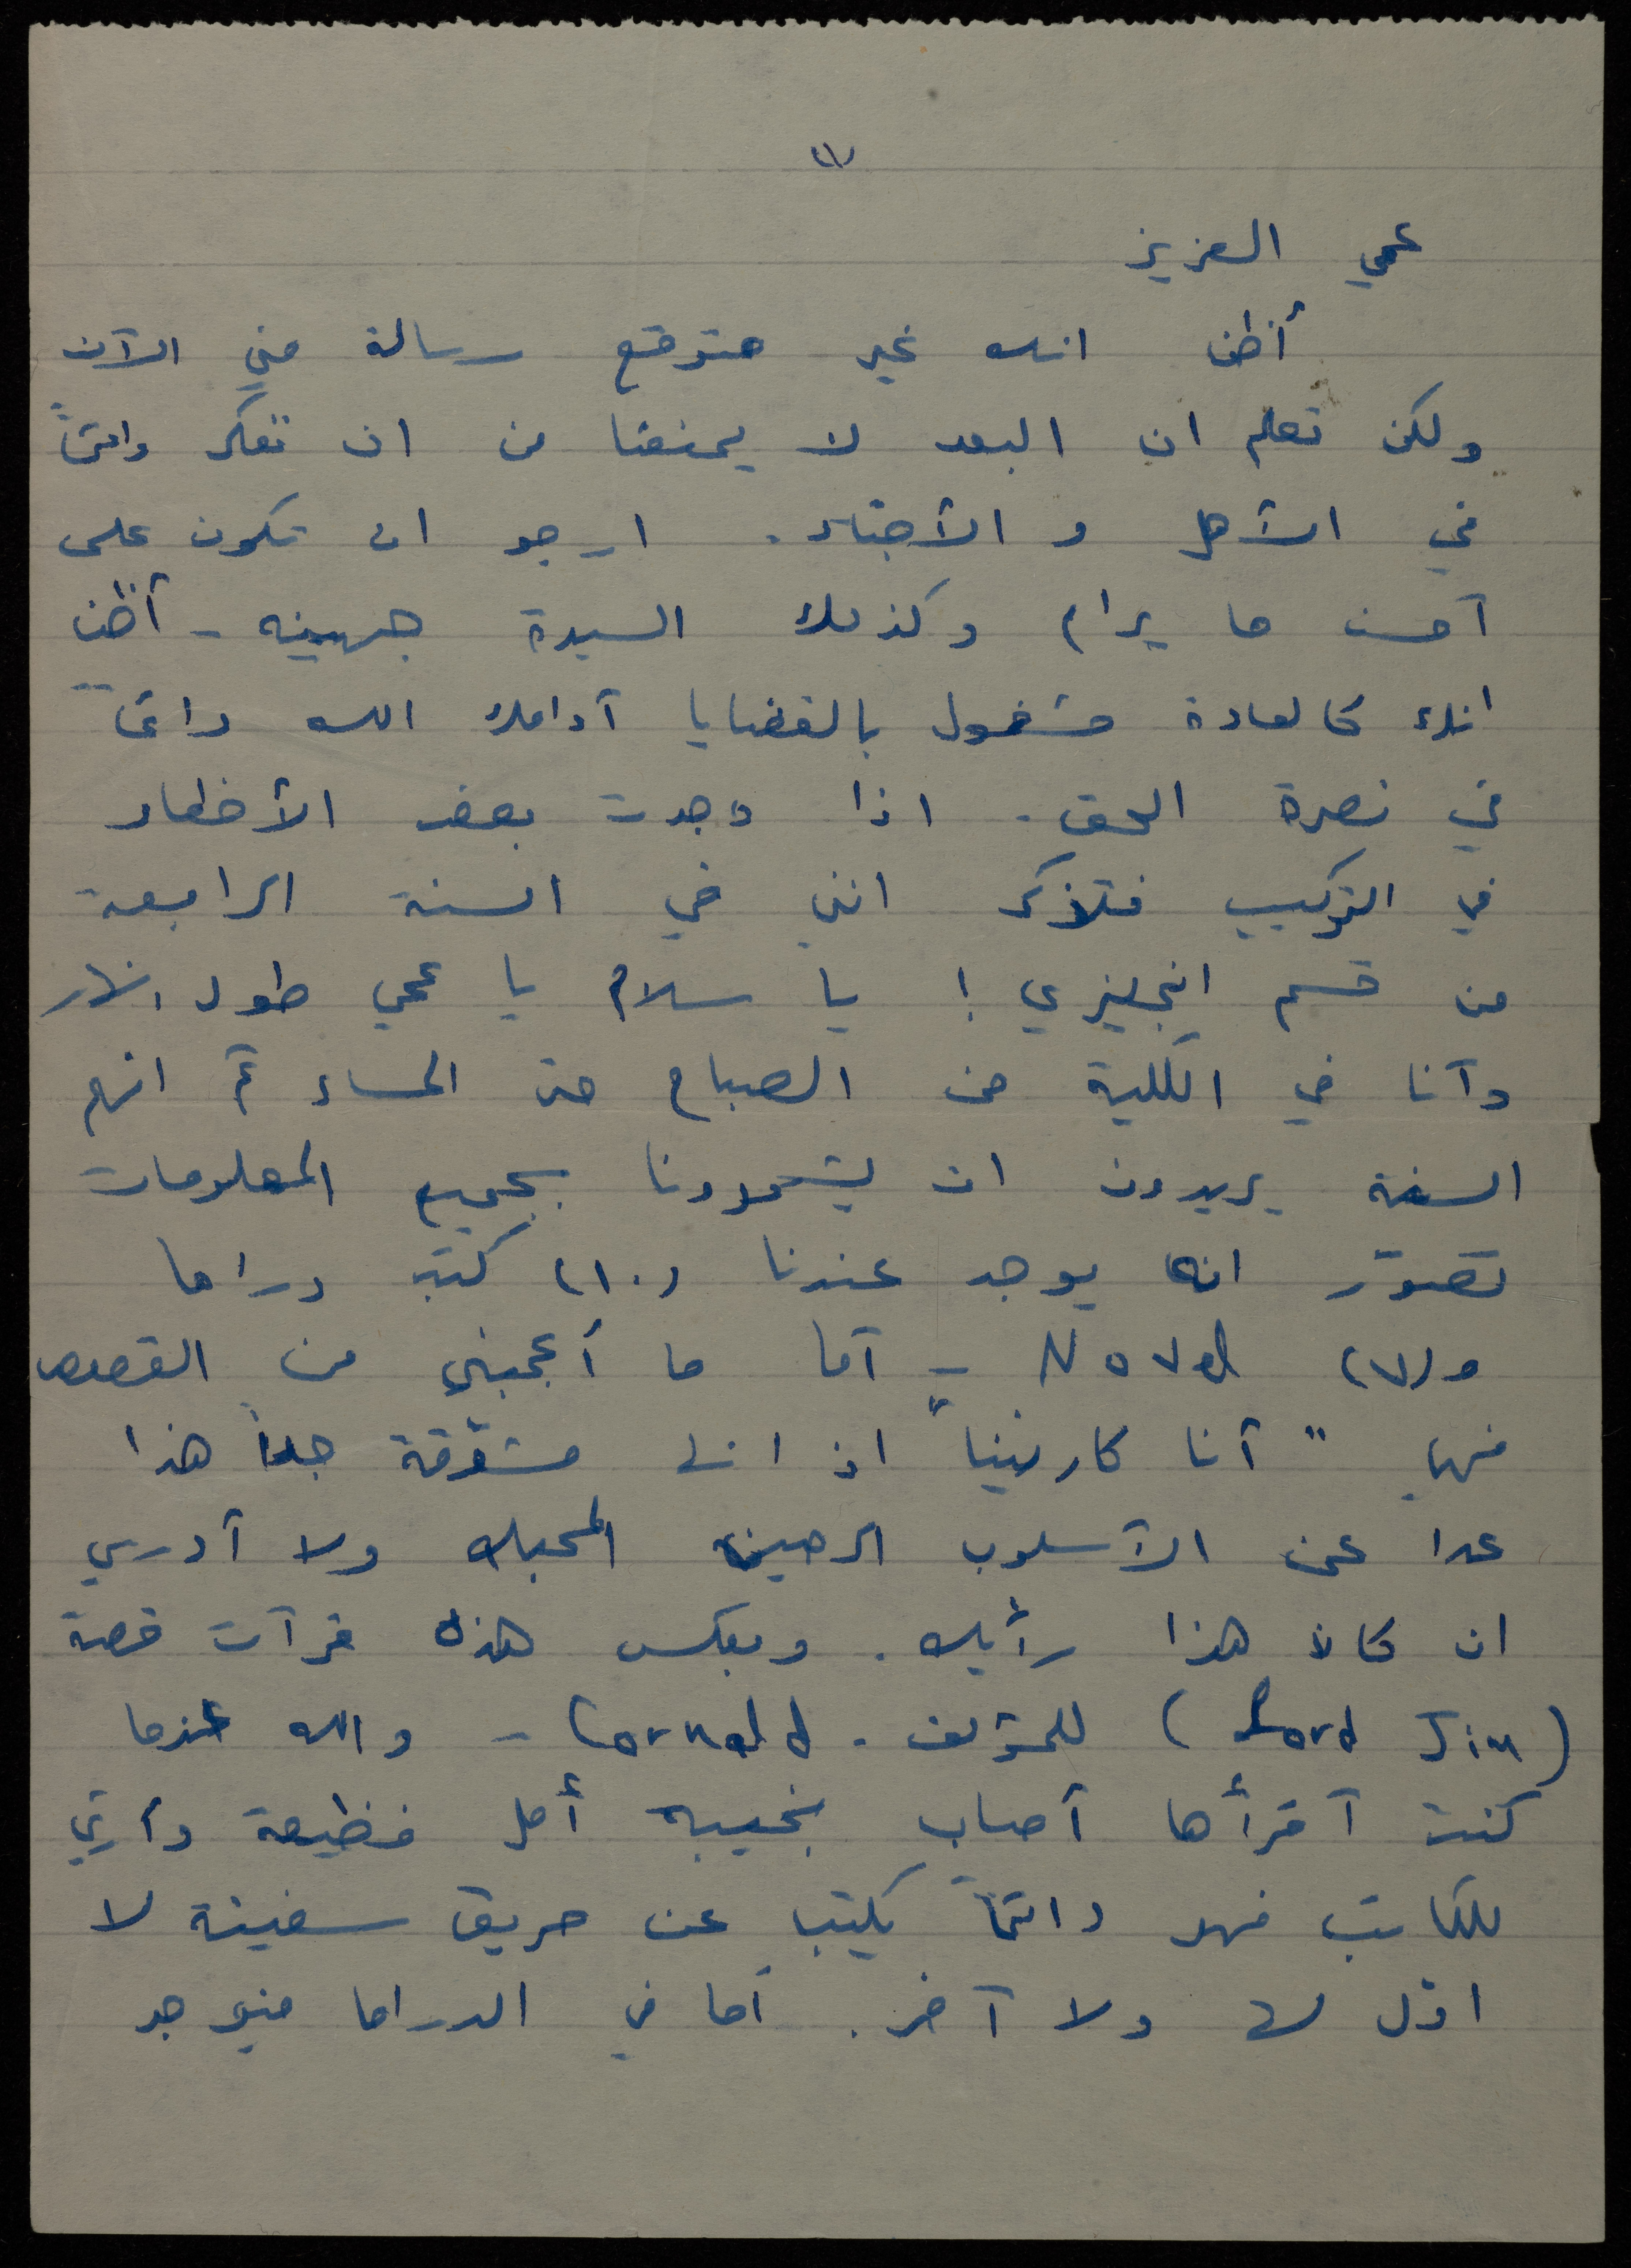 (١)
عمي العزيز
أظن انك غير متوقع رسالة مني الآن
ولكن تعلم ان البعد لا يمنعنا من ان نفكر دائماً
في الأهل و الأحباء. ارجو ان تكون على
أحسن ما يرام وكذلك السيدة جهينه - أظن
انك كالعادة مشغول بالقضايا أدامك الله دائماً
في نصرة الحق. اذا وجدت بعض الأخطاء
في التركيب فتذكر انني في السنة الرابعة
من قسم انجليزي! يا سلام يا عمي طول النهار
وأنا في الكلية من الصباح حتى المساء ثم انهم
السنة يريدون ان يشحدونا بجميع المعلومات
تصوّر انه يوجد عندنا (١٠) كتب دراما
و(٧) Novel - أما ما أعجبني من القصص
فهي "أنا كارنينا" اذ انها مشوّقة جداً هذا
عدا عن الأسلوب الرصين المحبك ولا أدري
ان كان هذا رأيك. وبعكس هذه قرأت قصة
(Lord Jim) للمؤلف. Cornald - والله عندما
كنت أقرأها أصاب بخيبه أمل فظيعة
للكاتب فهو دائماً يكتب عن حريق سفينة لا
اوّل لها ولا آخر. أما في الدراما فيوجد